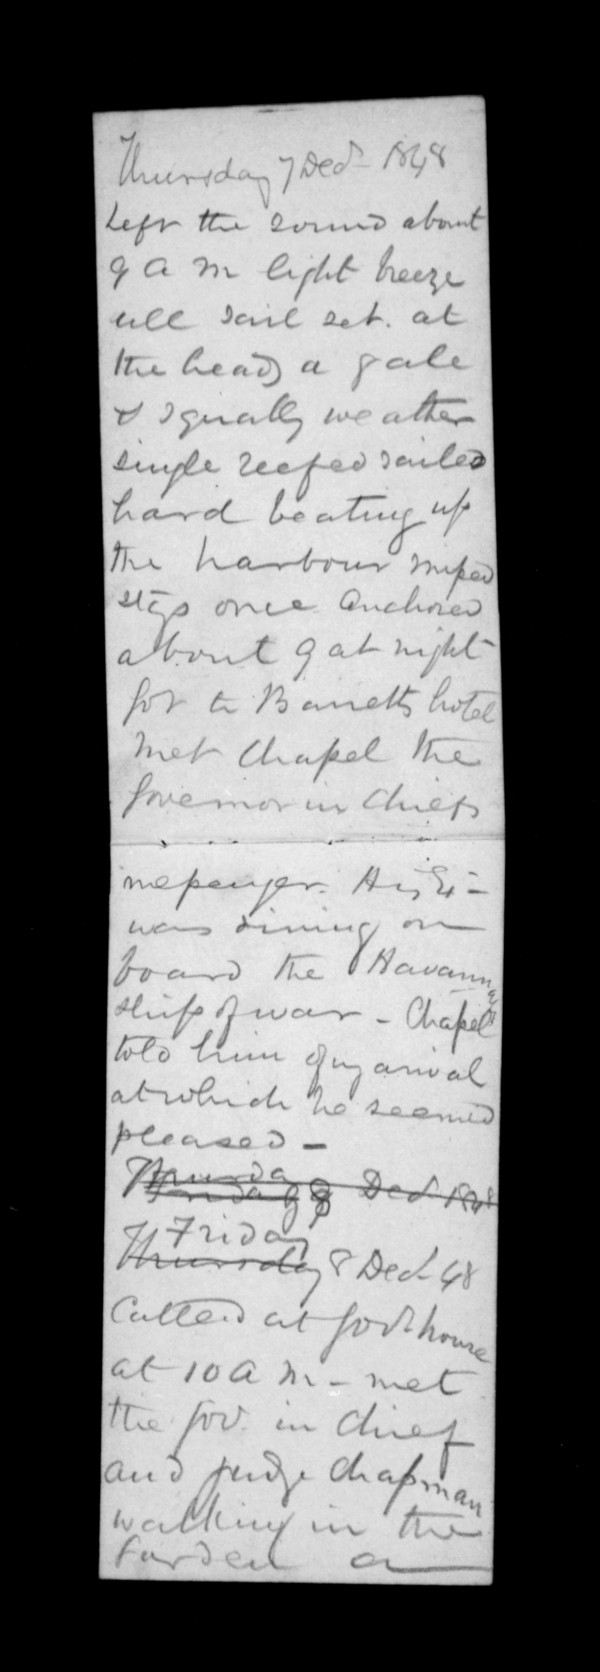 Thursday 7 Decr 1848
Left the sound about
9 A M light breeze
all sail set. at
the heads a gale
& squally weather
single reefed sailed
hard beating up
the harbour missed
stays once Anchored
about 9 at night
got to Barretts hotel
Met Chapel the
Governor in Chiefs
messenger. His Ex-
was dining on
board the Havannah
ship of war - Chapel
told him of my arival
at which he seemed
pleased -
Thursday
Friday 8 Decr 1848
Friday
Thursday 8 Decr 48
Called at Govt house
at 10 A M - met
the Gov. in Chief
and judge Chapman
walking in the
Garden a